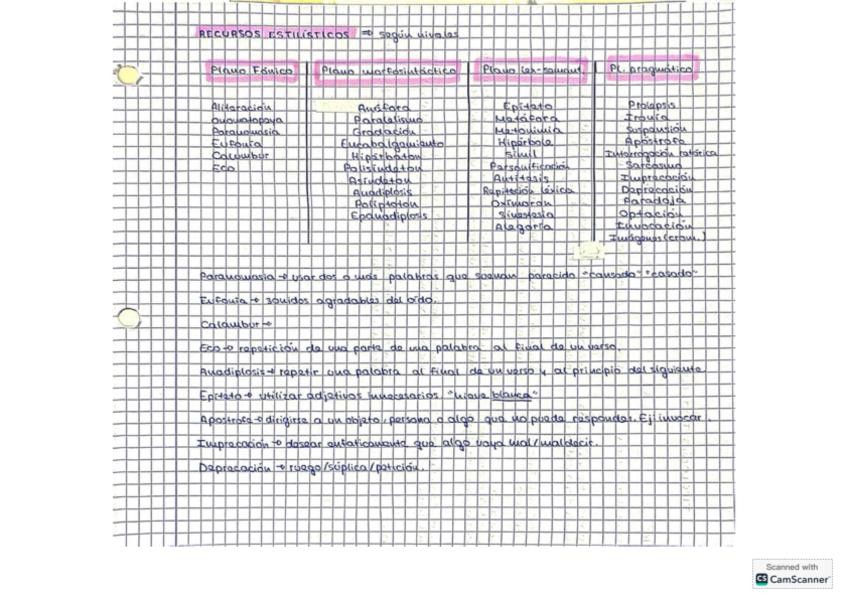 RECURSOS ESTILÍSTICOS → según niveles
Plano Fónico
Aliteración
Onomatopeya
Paranomasia
Eufonía
Calambur
Eco
Plano morfosintáctico
Anáfora
Paralelismo
Gradación
Encabalgamiento
Hipérbaton
Polisíndeton
Asíndeton
Anadiplosis
Poliptoton
Epanadiplosis
Plano léx-semánt.
Epíteto
Metáfora
Metonimia
Hipérbole
Símil
Personificación
Antítesis
Repetición léxica
Oxímoron
Sinestesia
Alegoría
Pl. pragmático
Prolepsis
Ironía
Suspensión
Apóstrofe
Interrogación retórica
Sarcasmo
Imprecación
Deprecación
Paradoja
Optación
Invocación
Imágenes
Paranomasia → usar dos o más palabras que suenan parecido "cansado" "casado"
Eufonía → sonidos agradables del oído.
Calambur →
Eco → repetición de una parte de una palabra al final de un verso.
Anadiplosis → repetir una palabra al final de un verso y al principio del siguiente
Epíteto → utilizar adjetivos innecesarios "nieve blanca"
Apóstrofe → dirigirte a un objeto, persona o algo que no puede responder. Ej invocar
Imprecación → desear enfáticamente que algo vaya mal/maldecir.
Deprecación → ruego/súplica/petición.
Scanned with
CS CamScanner